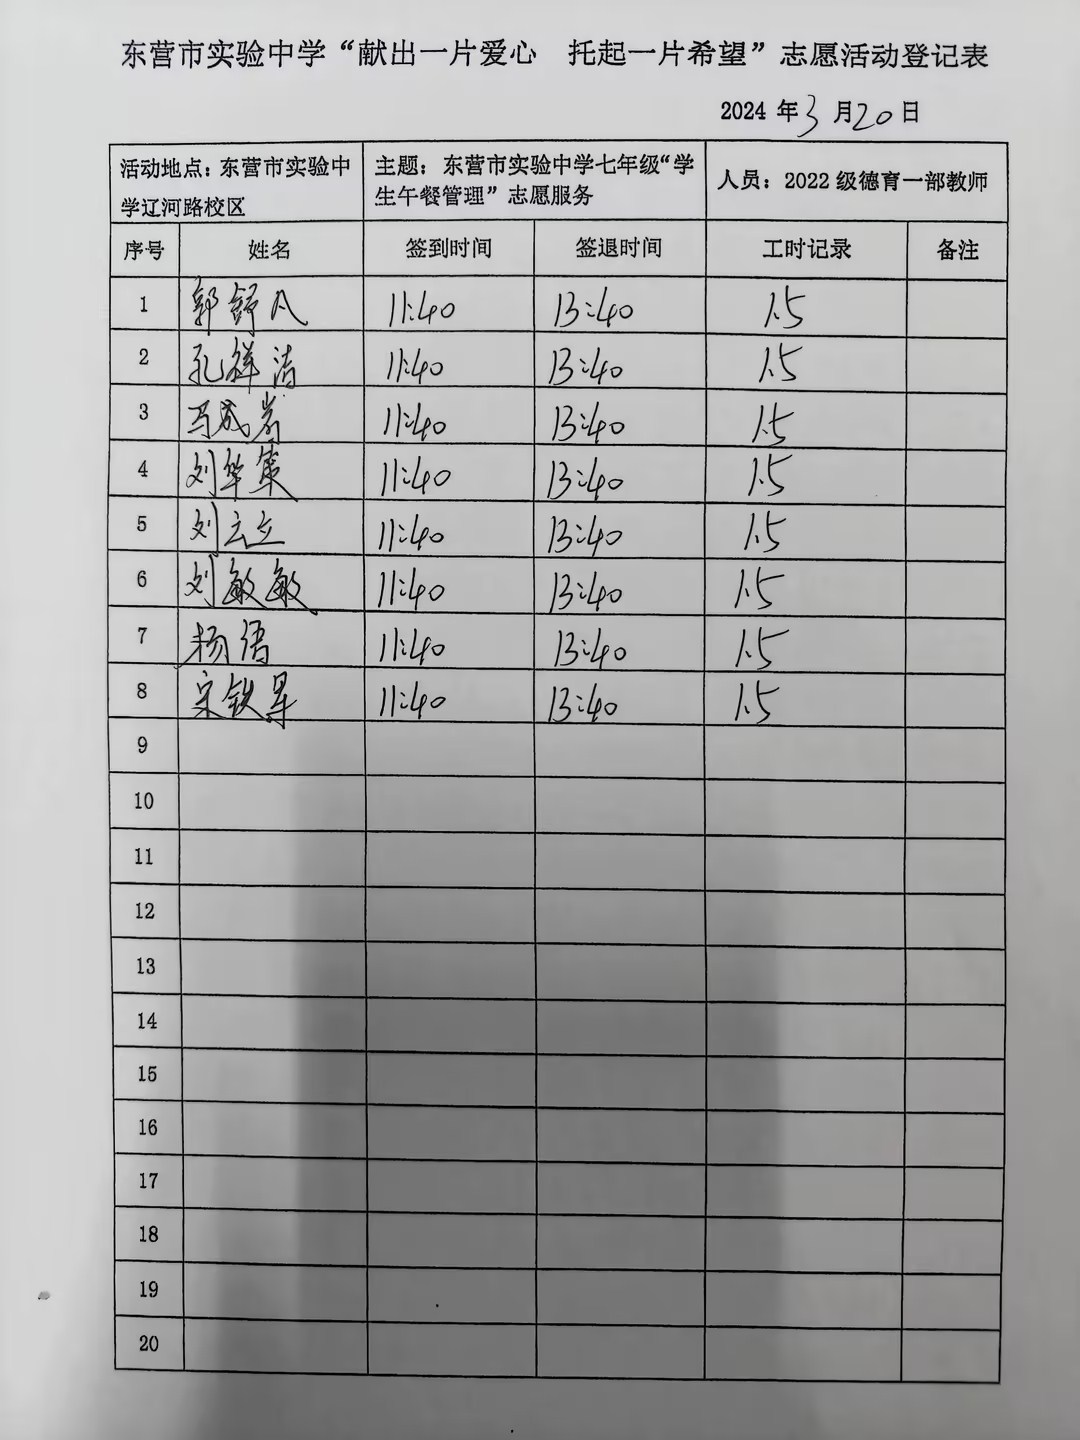 东营市实验中学“献出一片爱心 托起一片希望”志愿活动登记表
2024 年 3 月 20 日
活动地点：东营市实验中
学辽河路校区
主题：东营市实验中学七年级“学
生午餐管理”志愿服务
人员：2022 级德育一部教师
序号 姓名 签到时间 签退时间 工时记录 备注
1 郭舒凡 11:40 13:40 1.5
2 孔祥洁 11:40 13:40 1.5
3 马成岩 11:40 13:40 1.5
4 刘华集 11:40 13:40 1.5
5 刘云立 11:40 13:40 1.5
6 刘敏敏 11:40 13:40 1.5
7 杨语 11:40 13:40 1.5
8 宋铁军 11:40 13:40 1.5
9
10
11
12
13
14
15
16
17
18
19
20